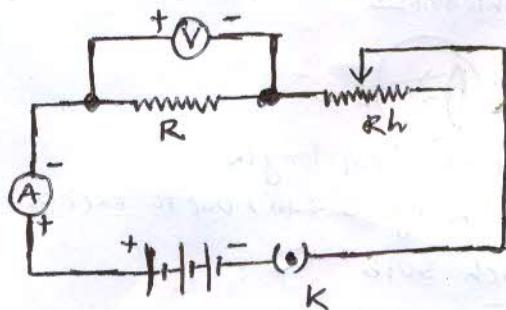 + V -
R
Rh
-
A
+
+ -
(•)
K